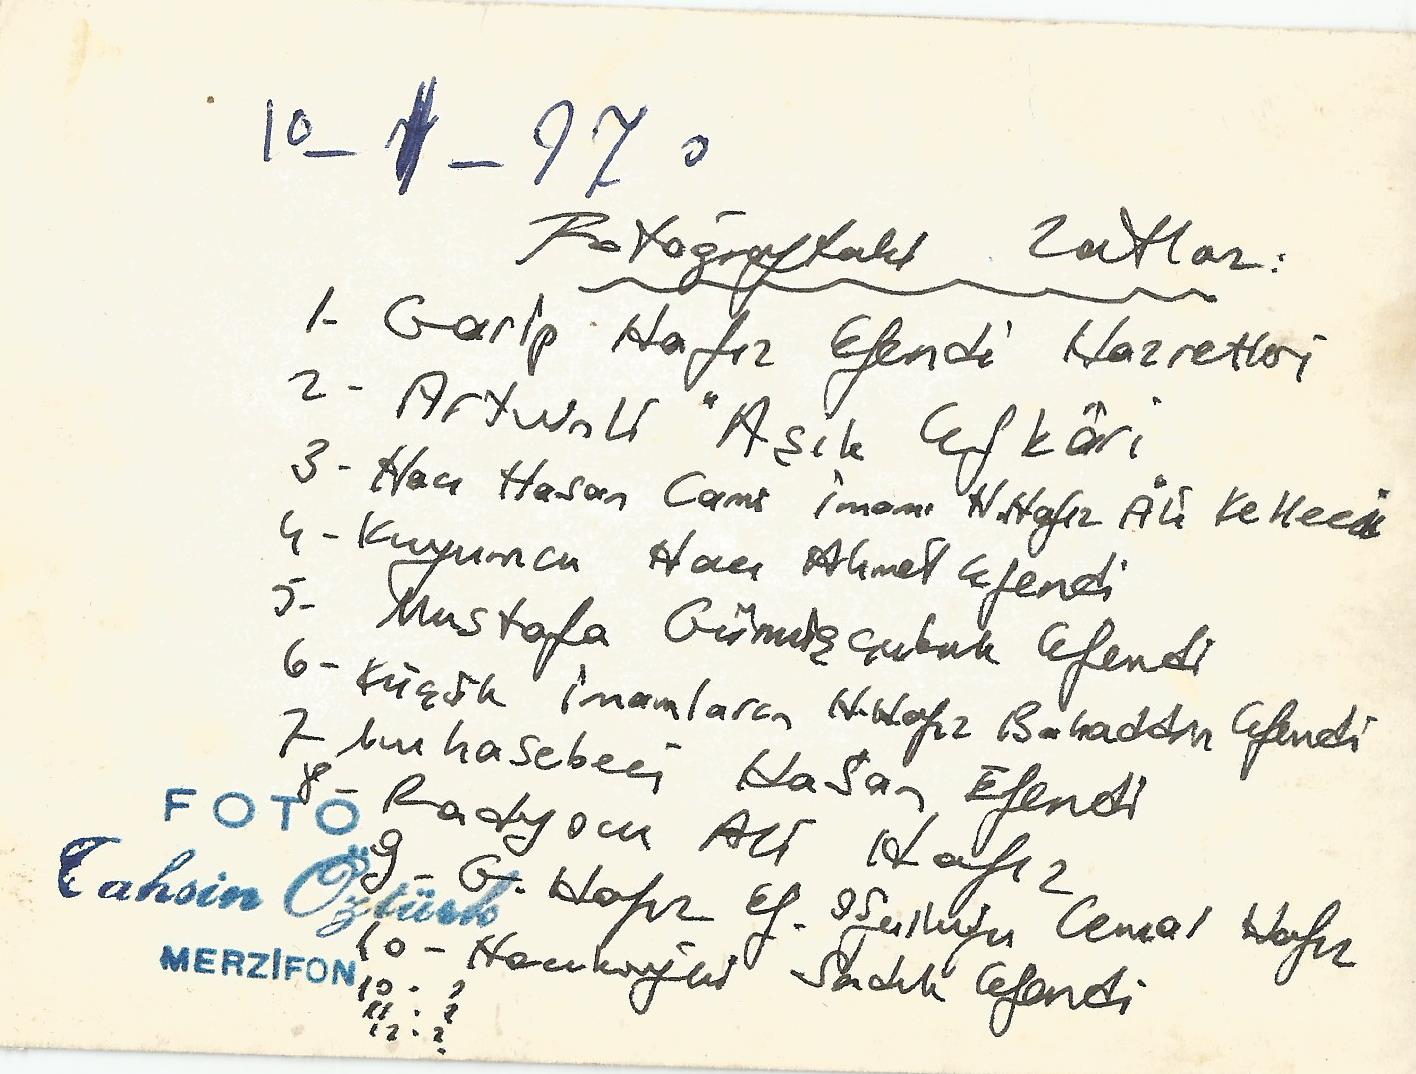 10 - 1 - 970
Fotoğraftaki Zatlar:
1- Garip Hafız Efendi Hazretleri
2- Artvinli "Aşık Efkâri
3- Hacı Hasan Cami imamı H.Hafız Ali
4- Kuyumcu Hacı Ahmet Efendi
5- Mustafa Gümüşçubuk Efendi
6- Küçük imamların H.Hafız Bahaddin Efendi
7- Muhasebeci Hasan Efendi
8- Radyocu Ali Hafız
9- G. Hafız Ef. oğulluğu Cemal Hafız
10- Sadık Efendi
10. ?
11. ?
12. ?
FOTO
Tahsin Öztürk
MERZİFON